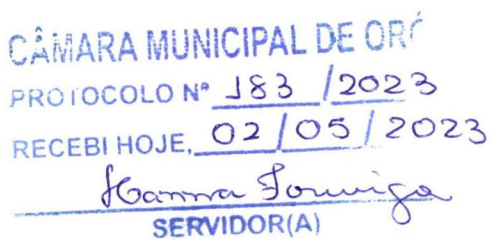 CÂMARA MUNICIPAL DE ORÓ
PROTOCOLO Nº 183 /2023
RECEBI HOJE, 02 / 05 / 2023
SERVIDOR(A)